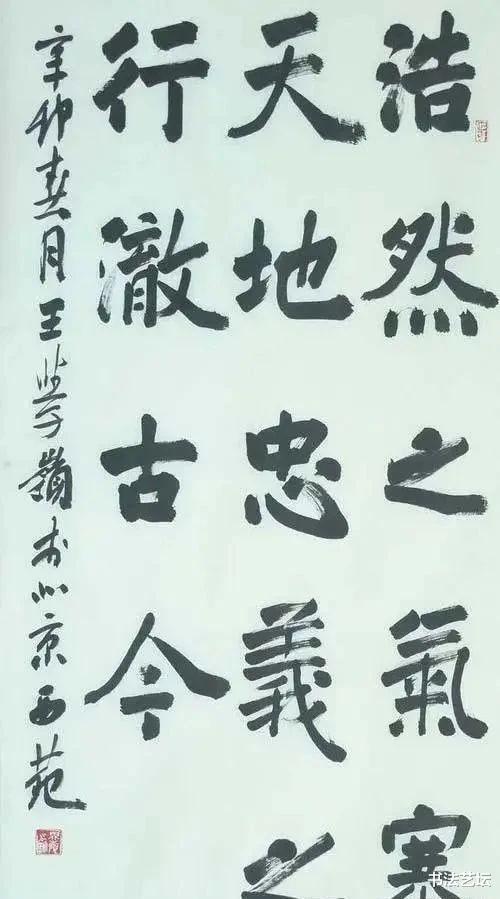 浩然之氣塞
天地忠義之
行澈古今
辛卯春月王學嶺於北京西苑
书法艺坛